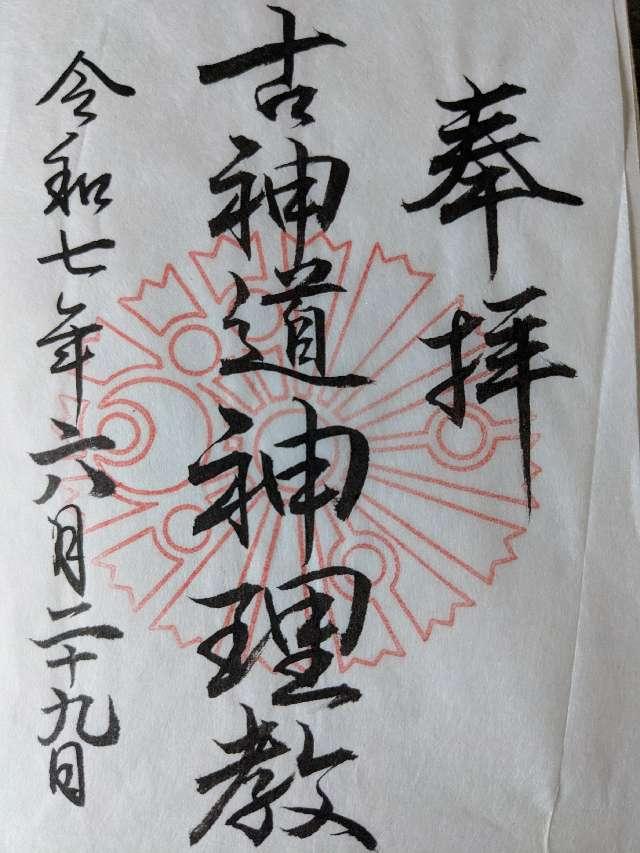 奉拝
古神道神理教
令和七年六月二十九日